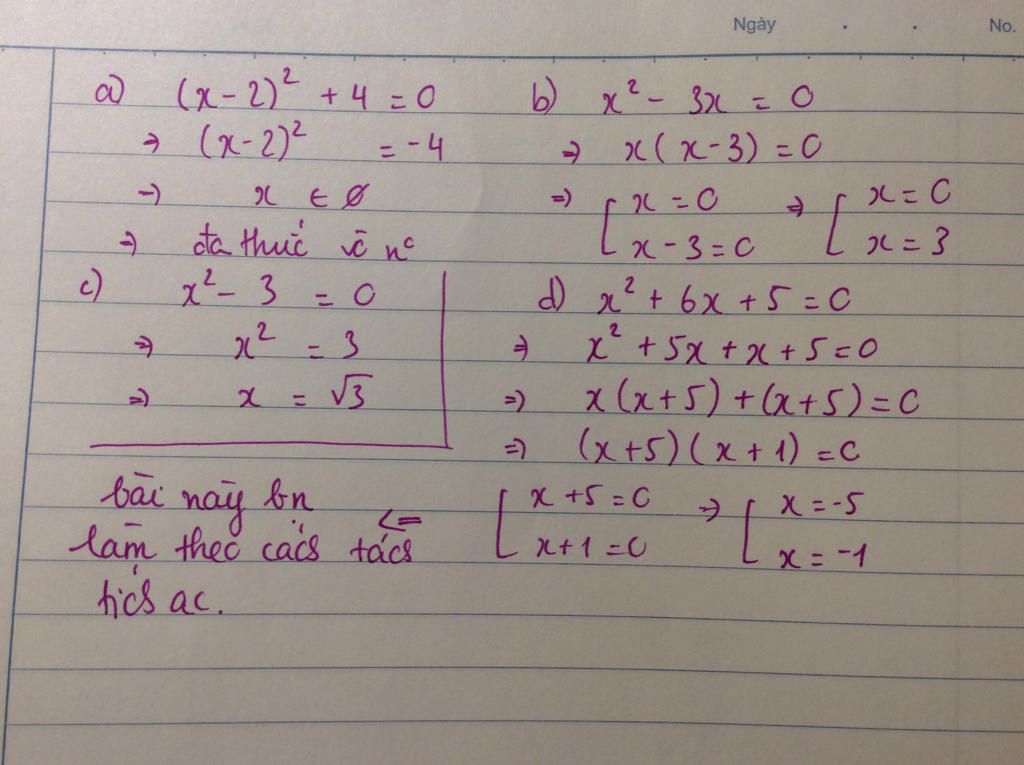 Ngày . . No.
a) (x-2)² + 4 = 0
⇒ (x-2)² = -4
⇒ x ∈ ∅
⇒ đa thức vô nᵒ
b) x² - 3x = 0
⇒ x(x-3) = 0
⇒ [ x = 0 ⇒ [ x = 0
x - 3 = 0 x = 3
c) x² - 3 = 0
⇒ x² = 3
⇒ x = √3
d) x² + 6x + 5 = 0
⇒ x² + 5x + x + 5 = 0
⇒ x(x+5) + (x+5) = 0
⇒ (x+5)(x+1) = 0
[ x + 5 = 0 ⇒ [ x = -5
x + 1 = 0 x = -1
bài này bn <=
làm theo cách tách
tích ac.